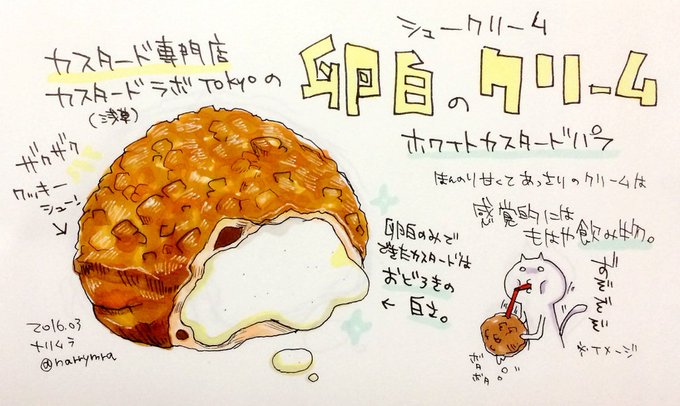 カスタード専門店
カスタードラボTOKYOの
(浅草)
シュークリーム
卵白のクリーム
ホワイトカスタードパフ
ほんのり甘くてあっさりのクリームは
感覚的には
もはや飲み物。
ザクザク
クッキー
シュー!
卵白のみで
できたカスタードは
おどろきの
← 白さ。
ボタ
ボタ
※イメージ
2016.03
ナリムラ